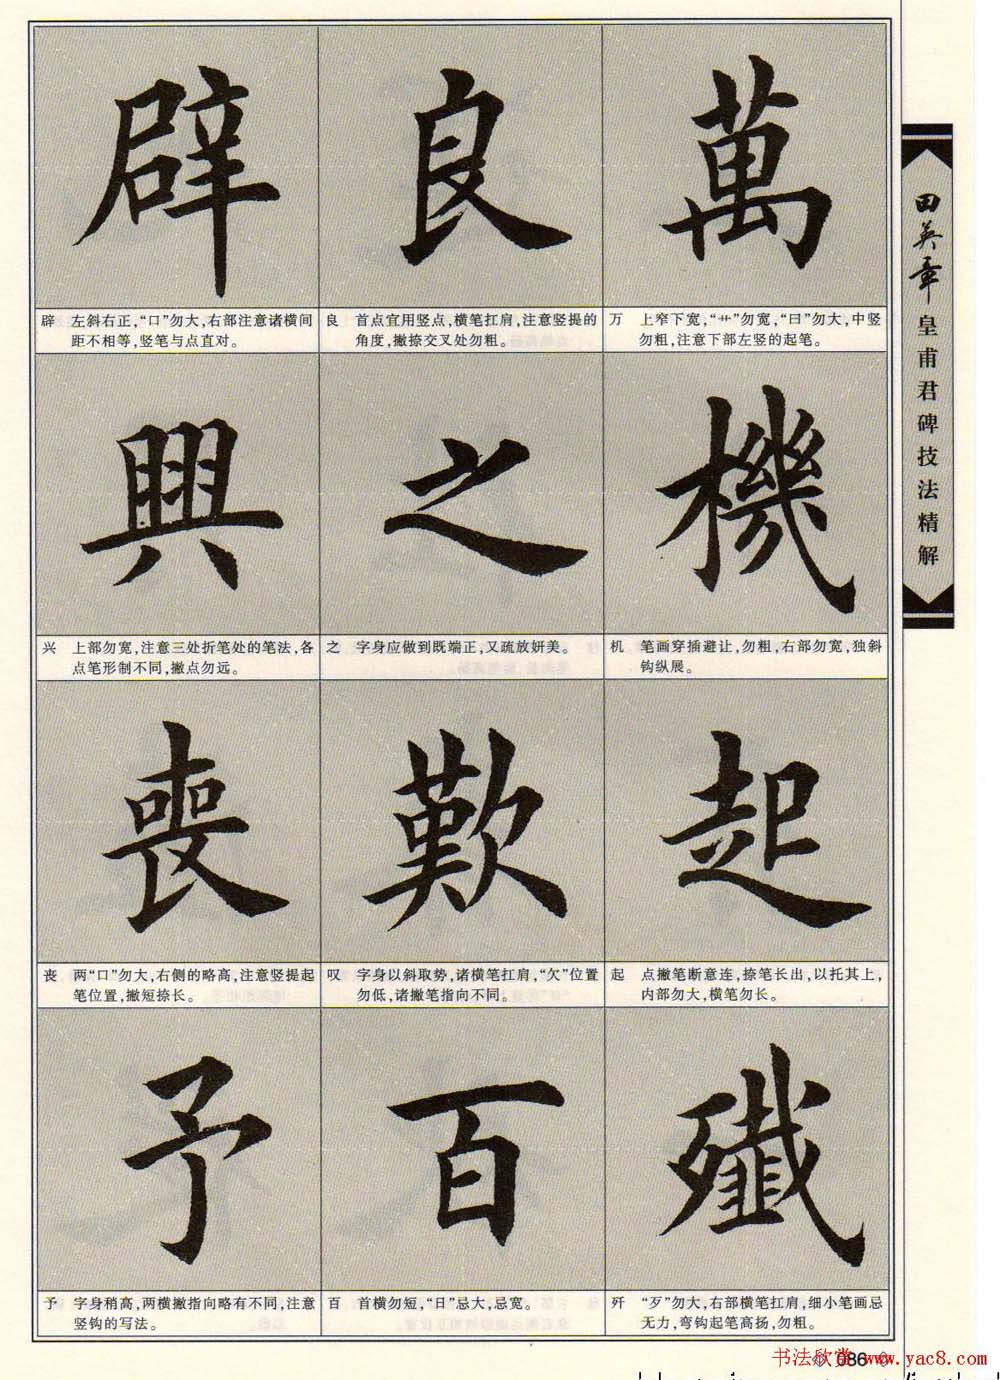 萬
良
辟
万 上窄下宽，“艹”勿宽，“曰”勿大，中竖
勿粗，注意下部左竖的起笔。
良 首点宜用竖点，横笔扛肩，注意竖提的
角度，撇捺交叉处勿粗。
辟 左斜右正，“口”勿大，右部注意诸横间
距不相等，竖笔与点直对。
機
之
興
机 笔画穿插避让，勿粗，右部勿宽，独斜
钩纵展。
之 字身应做到既端正，又疏放妍美。
兴 上部勿宽，注意三处折笔处的笔法，各
点笔形制不同，撇点勿远。
起
歎
喪
起 点撇笔断意连，捺笔长出，以托其上，
内部勿大，横笔勿长。
叹 字身以斜取势，诸横笔扛肩，“欠”位置
勿低，诸撇笔指向不同。
丧 两“口”勿大，右侧的略高，注意竖提起
笔位置，撇短捺长。
殲
百
予
歼 “歹”勿大，右部横笔扛肩，细小笔画忌
无力，弯钩起笔高扬，勿粗。
百 首横勿短，“日”忌大，忌宽。
予 字身稍高，两横撇指向略有不同，注意
竖钩的写法。
田英章 皇甫君碑技法精解
086
书法欣赏 www.yac8.com